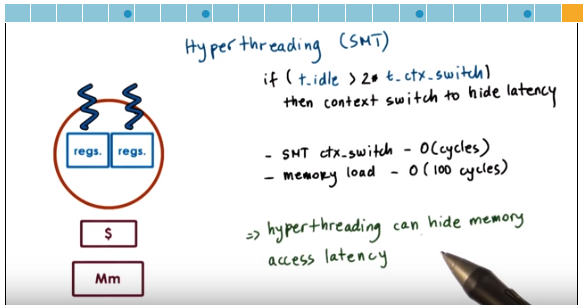 Hyperthreading (SMT)
if (t_idle > 2* t_ctx_switch)
then context switch to hide latency
regs. regs.
- SMT ctx_switch - O(cycles)
- memory load - O(100 cycles)
$
=> hyperthreading can hide memory
access latency
Mm